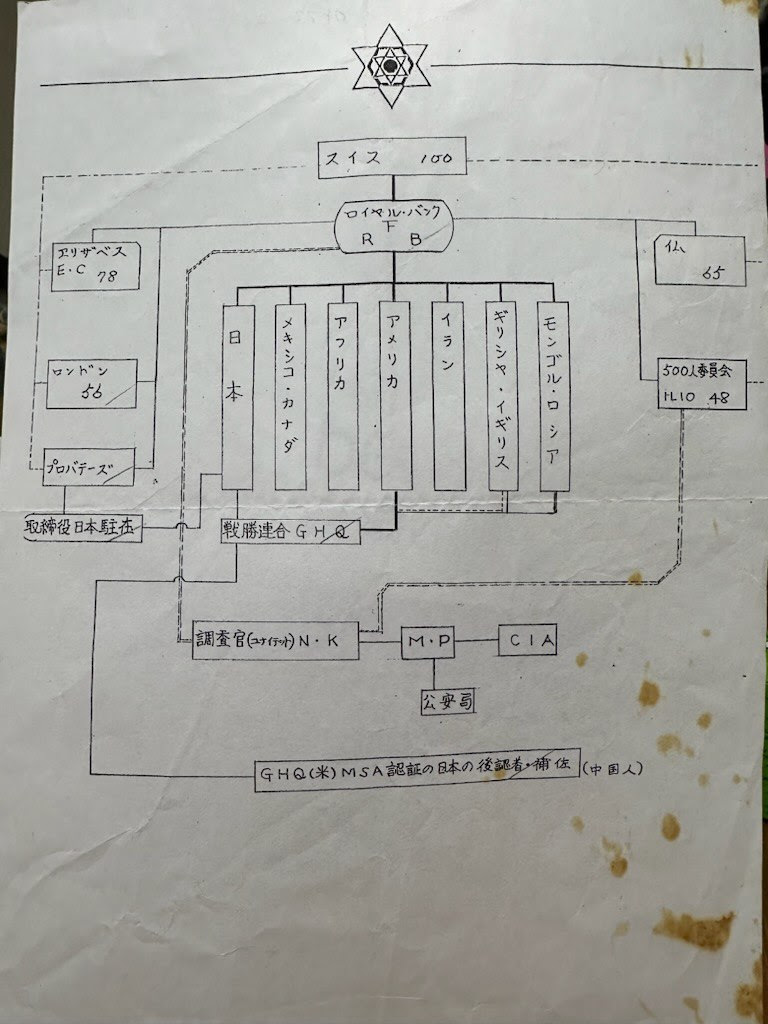 スイス 100
ロイヤル・バンク
F
R B
エリザベス
E・C 78
仏
65
ロンドン
56
500人委員会
11.10 48
プロバテーズ
取締役日本駐在
日本
メキシコ・カナダ
アフリカ
アメリカ
イラン
ギリシャ・イギリス
モンゴル・ロシア
戦勝連合GHQ
調査官(ユナイテット)N・K
M・P
CIA
公安局
GHQ(米)MSA認証の日本の後認者・補佐(中国人)